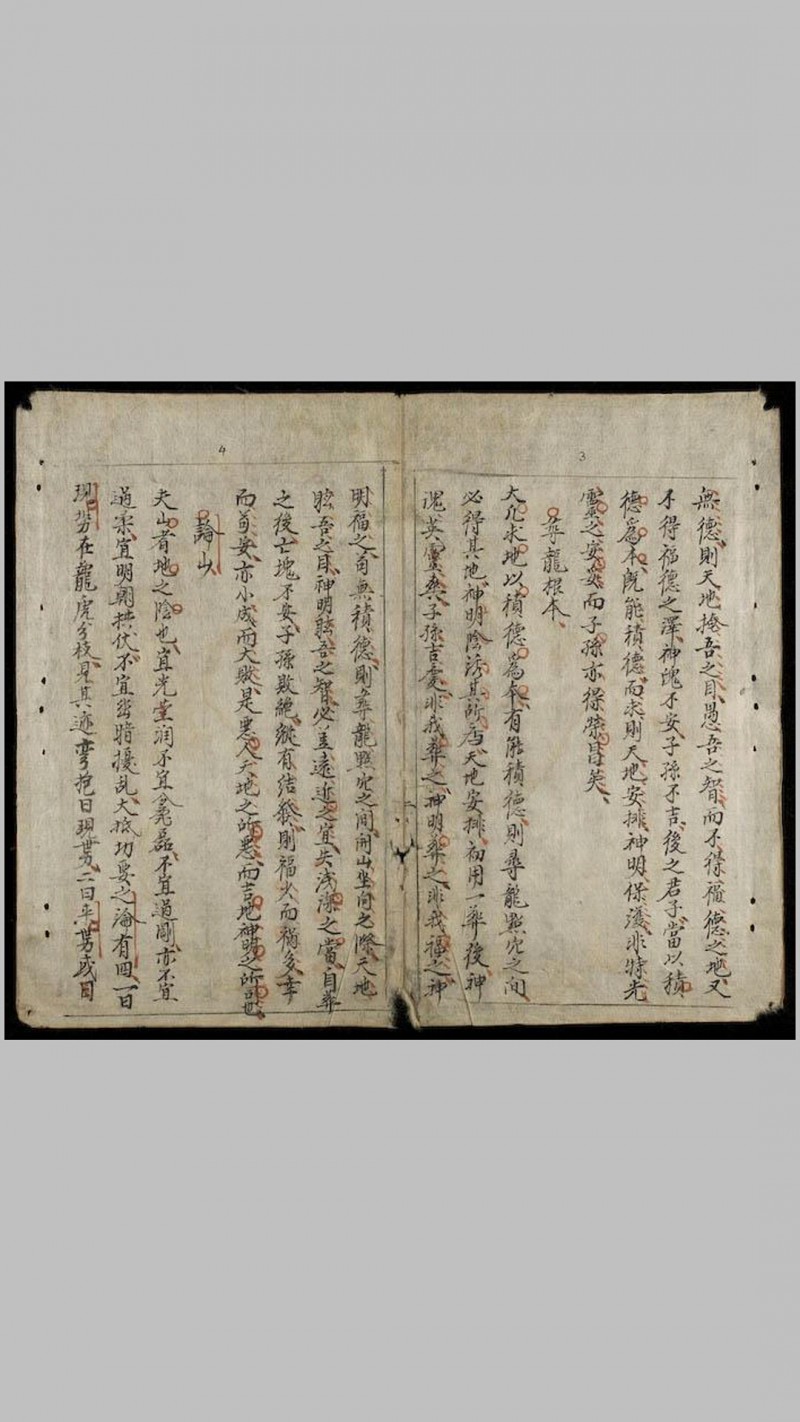 3
無德則天地掩吾之目愚吾之智而不得福德之地又
不得福德之澤神魄不安子孫不吉後之君子當以積
德爲本既能積德而求則天地安排神明保護非特先
靈之安妥而子孫亦得榮昌矣
尋龍根本
大凡求地以積德爲本有能積德則尋龍點穴之间
必得其地神明陰誘其所居天地安排初用一葬後神
魂英靈矣子孫吉慶非我葬之神明葬之非我福之神
4
明福之苟無積德則尋龍點穴之间開山坐向之際天地
眩吾之目神明眩吾之智必至遠近之宜失浅深之當自葬
之後亡塊不安子孫敗絶縱有結發則福少而禍多幸
而苟安亦小成而大敗是惡人天地之所惡而吉地神明之所
論山
夫山者地之陰也宜光葷润不宜麁磊不宜過剛亦不宜
過柔宜明朝拱伏不宜岩暗擾乱大抵功要之論有四一曰
現势在龍虎分枝見其迹弯抱曰現势二曰平势或目